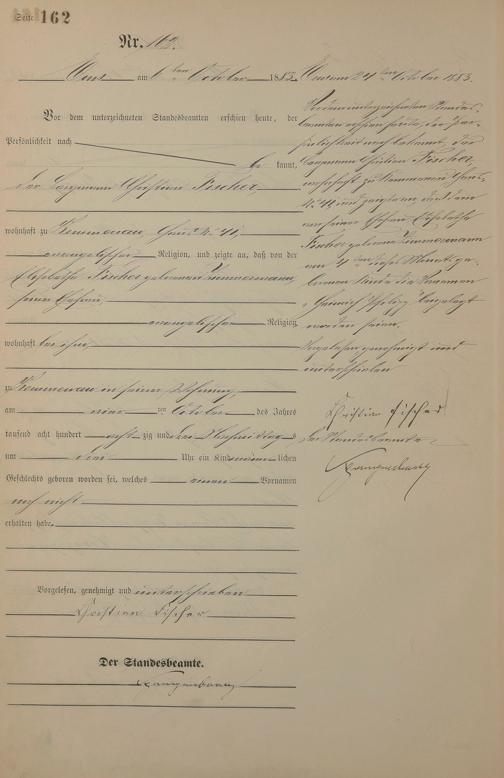 Seite 162
Nr. 162.
Ems am 6 ten October 1883.
Vor dem unterzeichneten Standesbeamten erschien heute, der
Persönlichkeit nach
be kannt,
der Bergmann Christian Fischer,
wohnhaft zu Kemmenau Haus N. 41,
evangelischer Religion, und zeigte an, daß von der
Elisabetha Fischer geborenen Zimmermann,
seiner Ehefrau
evangelischer Religion
wohnhaft bei ihm
zu Kemmenau in seiner Wohnung,
am ten October des Jahres
tausend acht hundert acht zig und drei Nachmittags
um Uhr ein Kind männ lichen
Geschlechts geboren worden sei, welches einen Vornamen
noch nicht
erhalten habe.
Vorgelesen, genehmigt und unterschrieben
Christian Fischer
Der Standesbeamte.
Ems am 24 ten October 1883.
Vor dem unterzeichneten Standes-
beamten erschien heute, der Per-
sönlichkeit nach bekannt, der
Bergmann Christian Fischer,
wohnhaft zu Kemmenau Haus
N. 41 und zeigte an, daß dem
von seiner Ehefrau Elisabetha
Fischer geborenen Zimmermann
am ten dieses Monats ge-
borenen Kinde die Vornamen
Heinrich Philipp beigelegt
worden seien.
Vorgelesen, genehmigt und
unterschrieben
Christian Fischer
Der Standesbeamte.